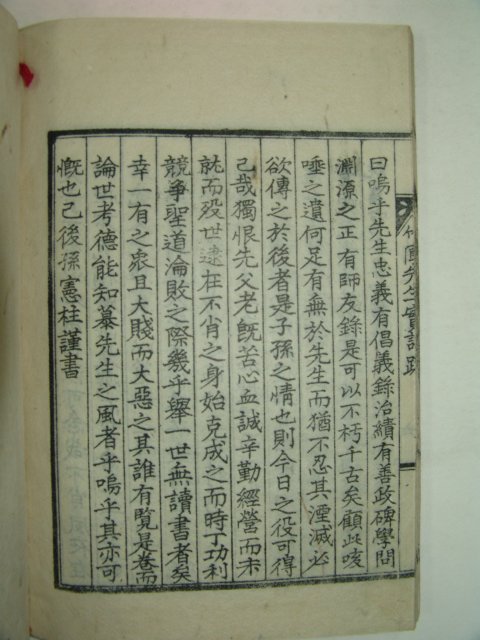 曰嗚乎先生忠義有倡義錄治績有善政碑學問
淵源之正有師友錄是可以不朽千古矣顧此咳
唾之遺何足有無於先生而猶不忍其湮滅必
欲傳之於後者是子孫之情也則今日之役可得
已哉獨恨先父老旣苦心血誠辛勤經營而未
就而歿世逮在不肖之身始克成之而時丁功利
競爭聖道淪敗之際幾乎舉一世無讀書者矣
幸一有之衆且大賤而大惡之其誰有覽是卷而
論世考德能知慕先生之風者乎嗚乎其亦可
慨也己後孫憲柱謹書
先生實記跋